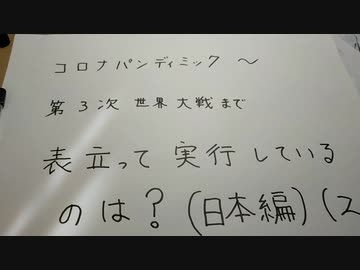 コロナパンディミック 〜
第3次 世界 大戦 まで
表立って 実行している
のは？(日本編)(ス